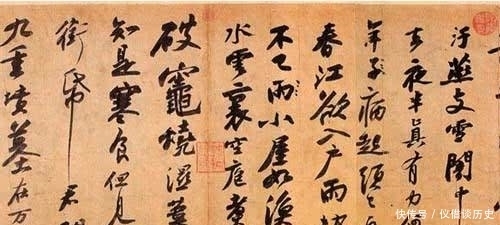 汙燕支雪闇中
去夜半真有力
年子病起頭已
春江欲入户雨勢
不已雨小屋如漁
水雲裏空庖煮
破竈燒濕葦
知是寒食但見
銜帋君門
九重墳墓在万
快传号/仪借谈历史